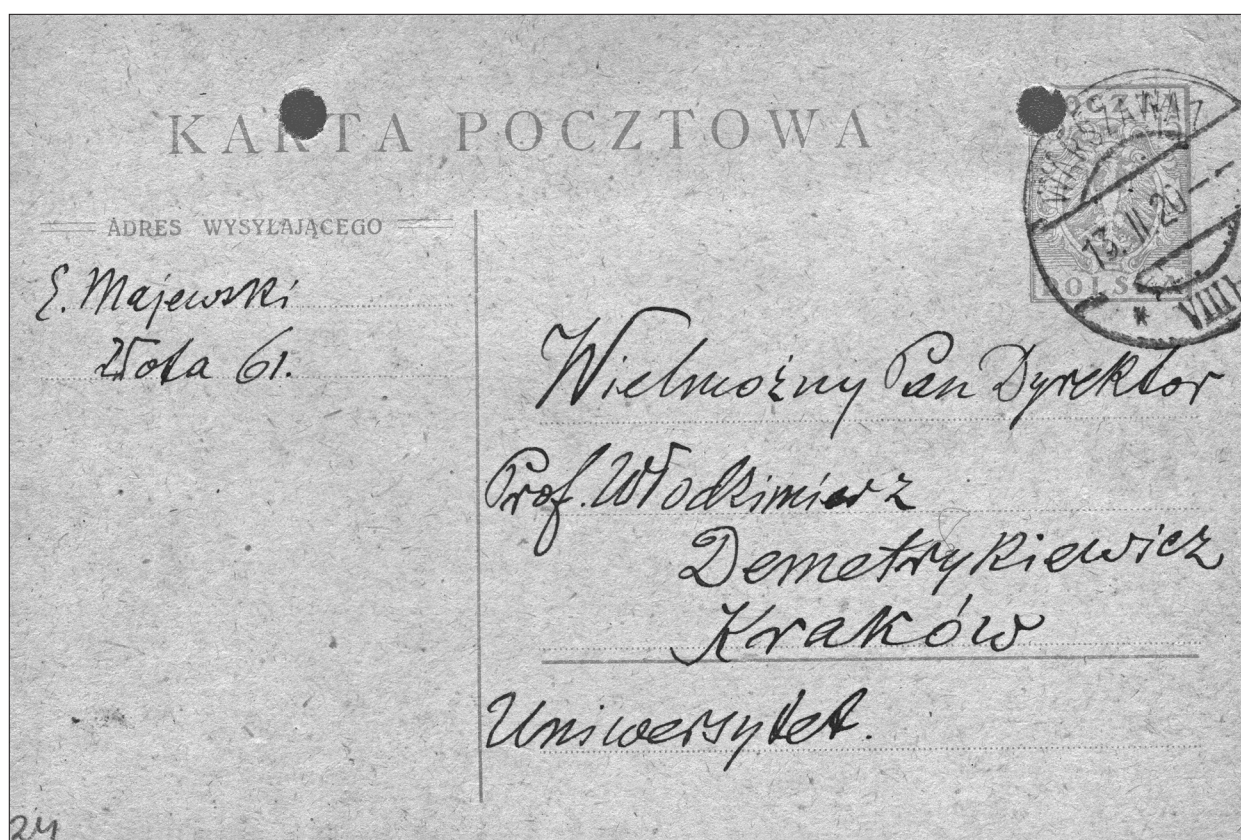 KARTA POCZTOWA
POCZTA
WARSZAWA 1
13. II. 20
VIII
POLSKA
ADRES WYSYŁAJĄCEGO
E. Majewski
Złota 61.
Wielmożny Pan Dyrektor
Prof. Włodzimierz
Demetrykiewicz
Kraków
Uniwersytet.
24